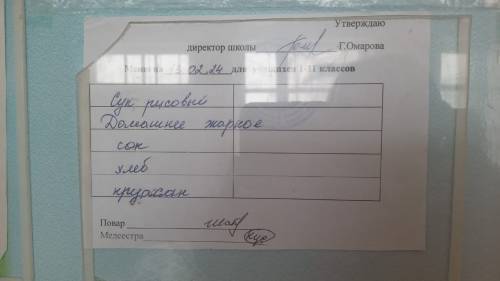 Утверждаю
директор школы Г.Омарова
Меню на 13.02.24 для учащихся 1-11 классов
Суп рисовый
Домашнее жаркое
сок
хлеб
круассан
Повар
Медсестра